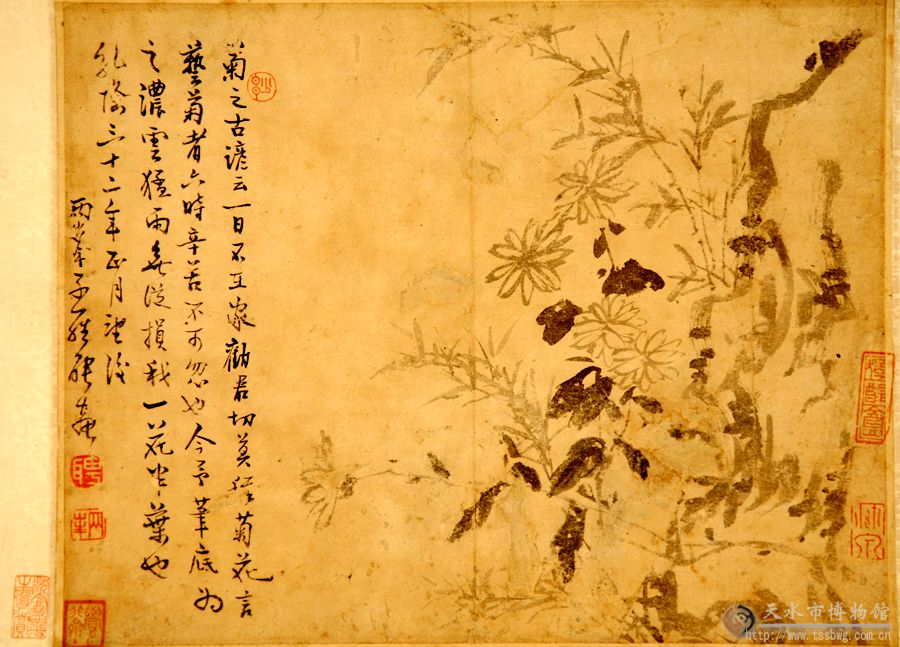 菊之古諺云一日不在家勸君切莫種菊花言
藝菊者六時辛苦不可忽也今予筆底為
之濃雲猛雨無從損我一花半葉也
乾隆三十二年正月望後
兩峯子
聘
天水市博物馆
http://www.tssbwg.com.cn